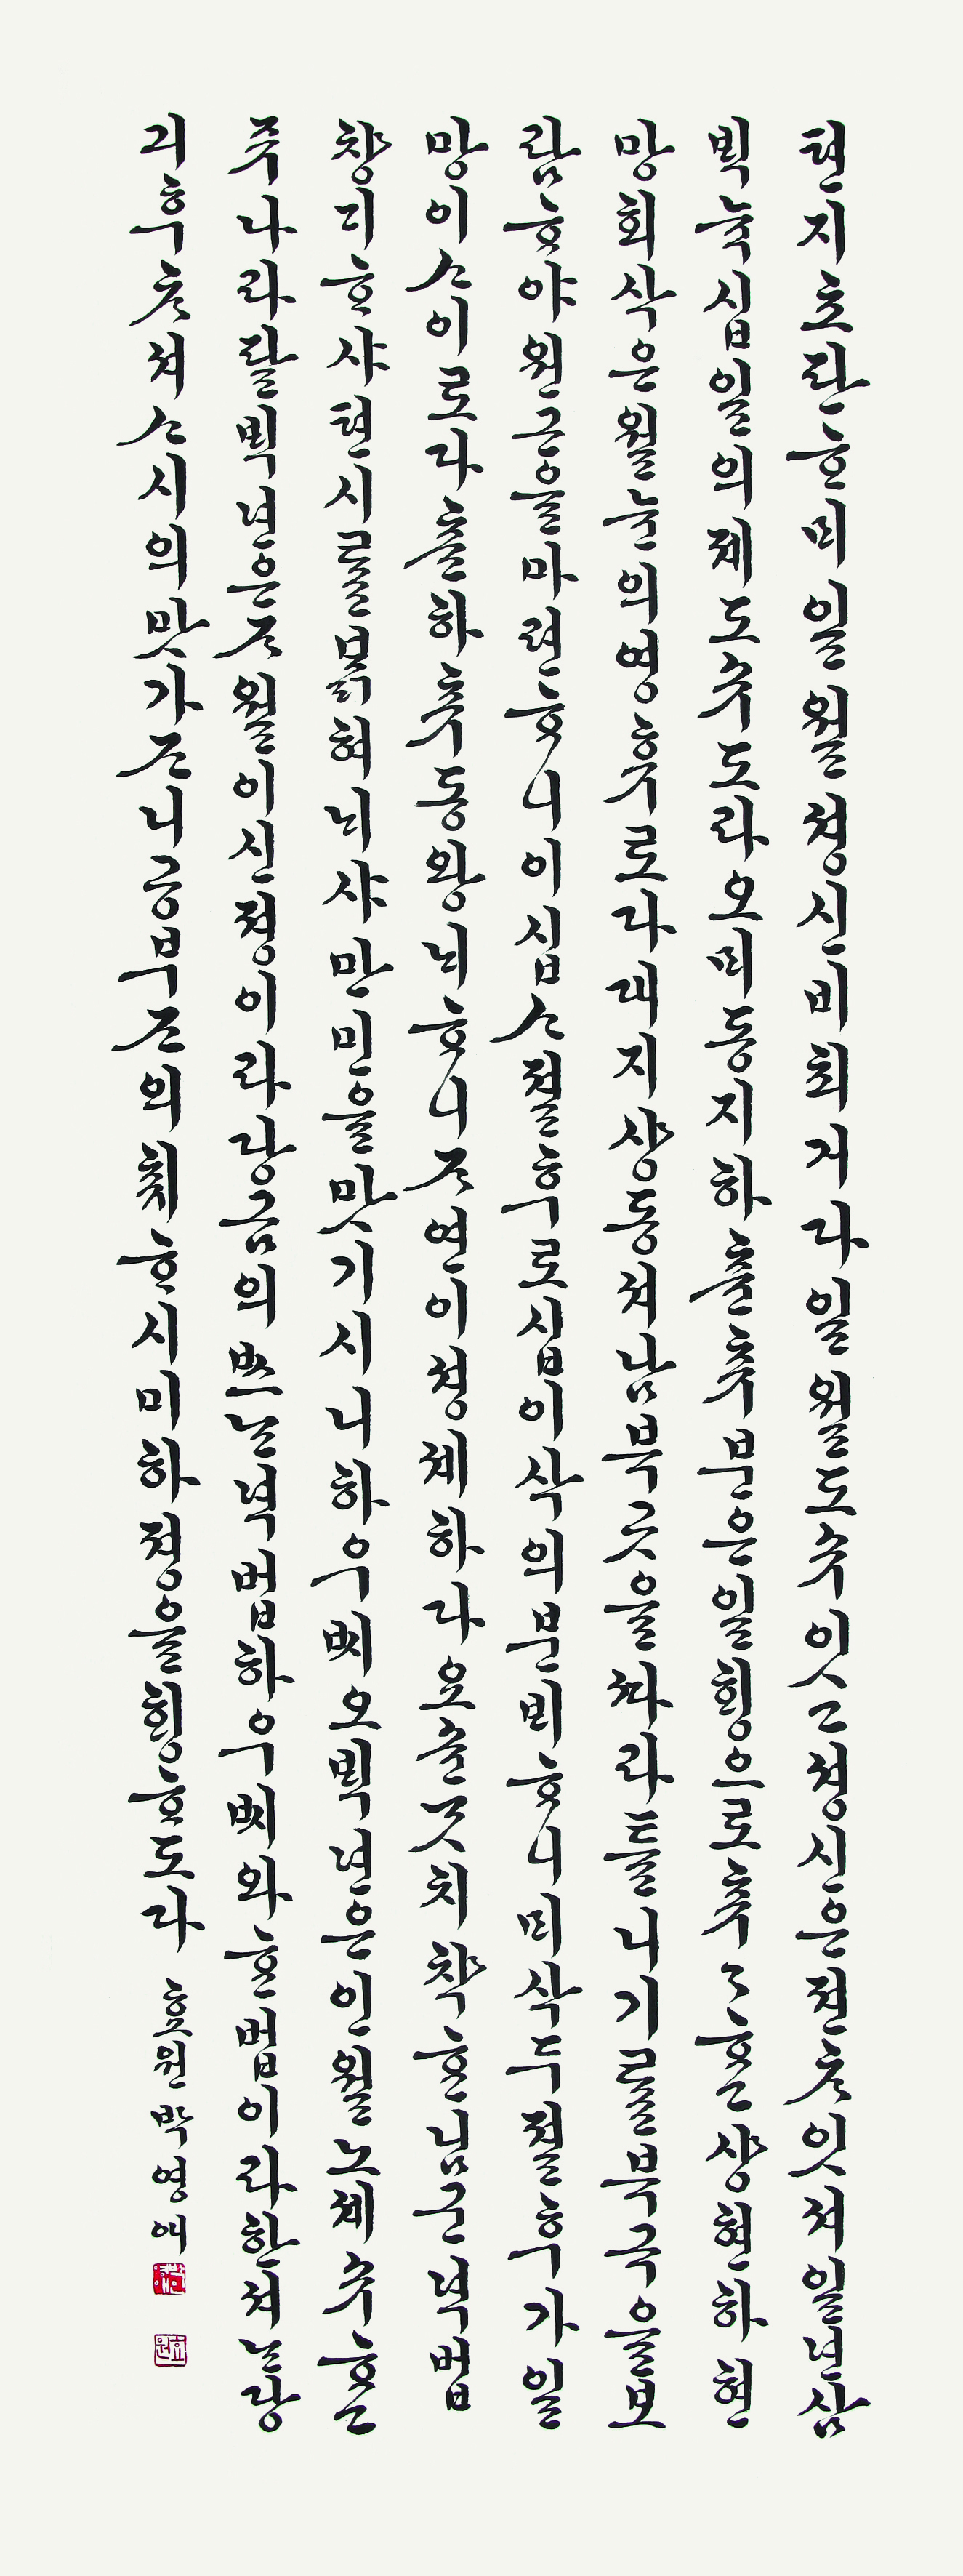 텬지초판ᄒᆞᄆᆡ일월셩신비최거다일월도수잇고셩신은젼ᄎᆞ잇셔일년삼
ᄇᆡᆨ뉵십일의졔도수도라오ᄆᆡ동지하츌츄분은일ᄒᆡᆼ으로츄ᄒᆞᆯ샹현하현
망회삭은월눌의영휴로다ᄃᆡ지샹동셔남북긋을ᄯᅡ라틀니기를북극을보
람ᄒᆞ야원근을마련ᄒᆞ니이십ᄉᆞ졀후로십이삭의분ᄇᆡᄒᆞ니ᄆᆡ삭두졀후가일
망이ᄉᆞ이로다츌하츄동왕ᄂᆡᄒᆞ니ᄌᆞ연이셩셰하다요슌ᄀᆞᆺ치착ᄒᆞᆫ님군녁법
창ᄀᆡᄒᆞ샤텬시를ᄇᆞᆰ혀ᄂᆡ샤만민을맛기시니하우ᄡᅵ오ᄇᆡᆨ년은인월노셰수ᄒᆞ고
쥬나라팔ᄇᆡᆨ년은ᄌᆞ월이신졍이라당금의ᄡᅳᄂᆞᆫ녁법하우ᄡᅵ와ᄒᆞᆫ법이라한셔ᄂᆞᆫ량
긔후ᄎᆞ셔ᄉᆞ시의맛가즈니공부ᄌᆞ의취ᄒᆞ시미하졍을ᄒᆡᆼᄒᆞ도다
효원 박영애